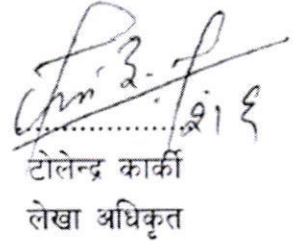 टोलेन्द्र कार्की
लेखा अधिकृत